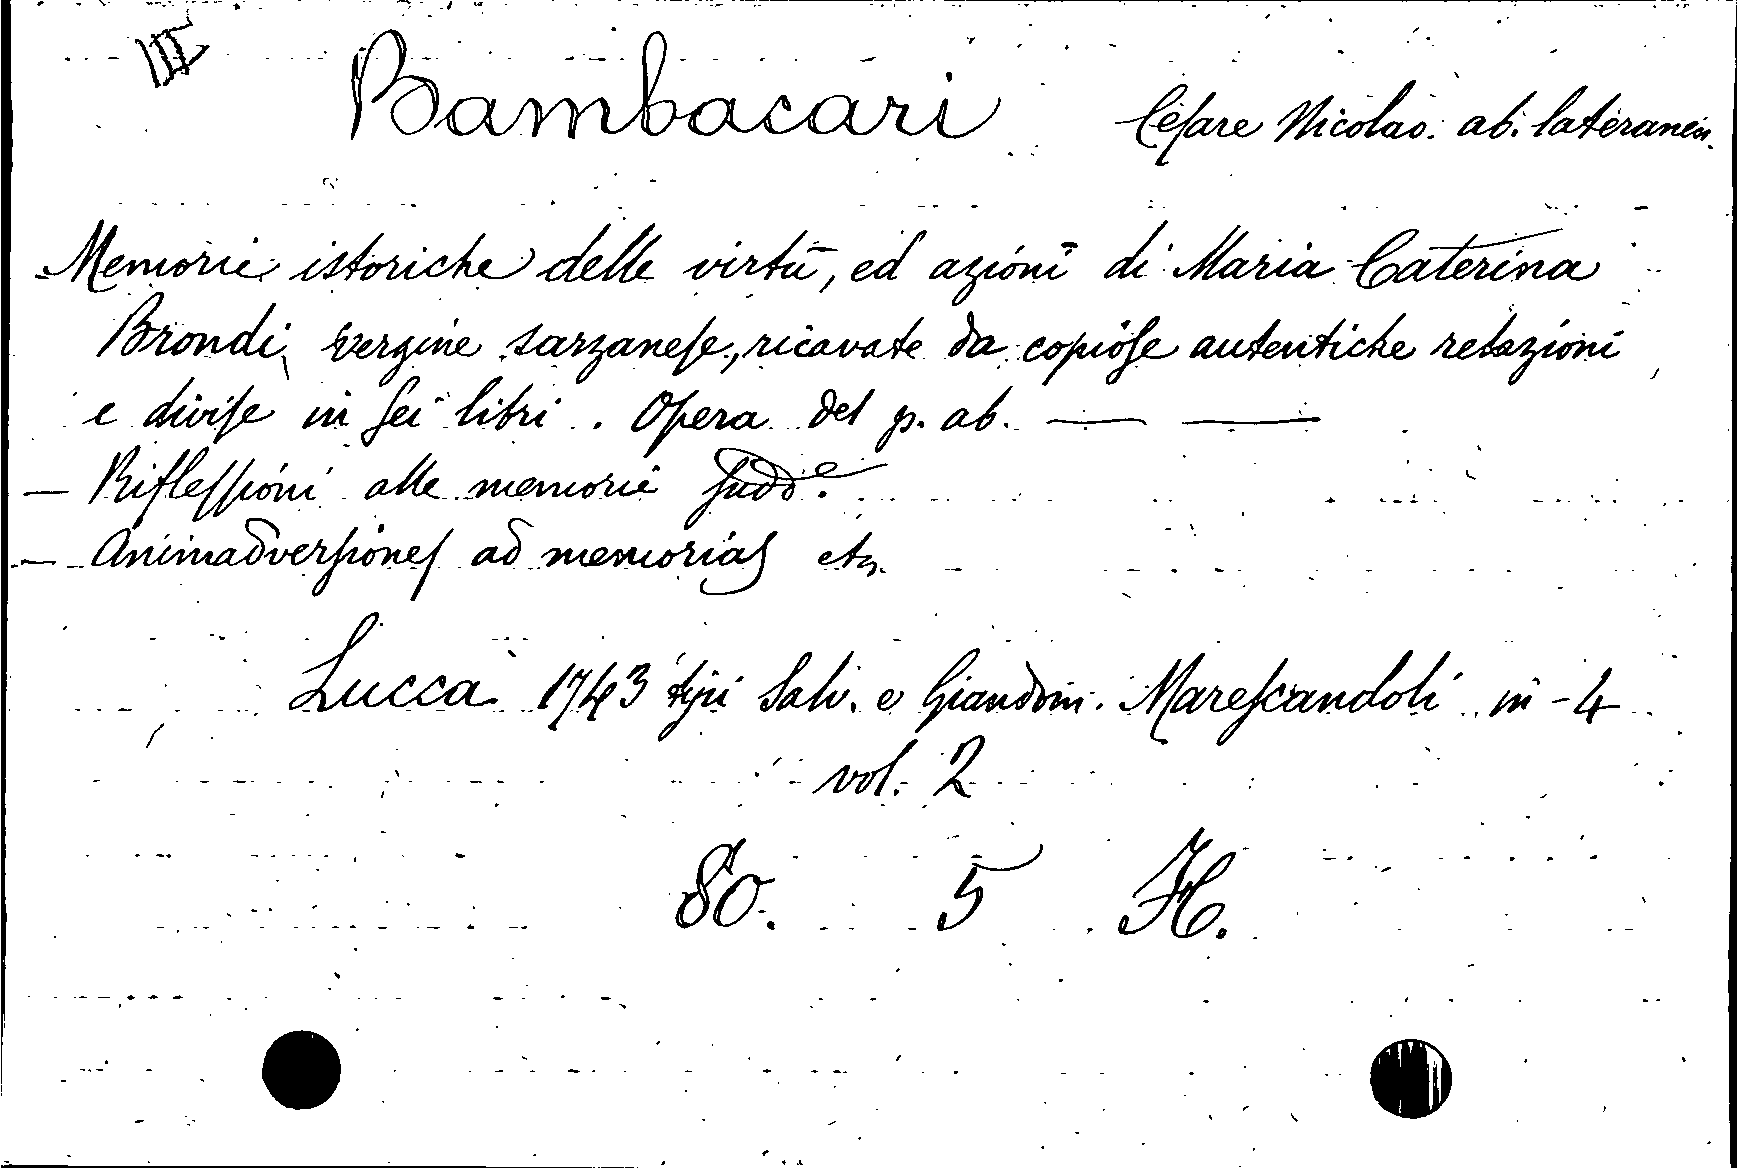 III
Bambacari Cesare Nicolao. ab. lateranen.
Memorie istoriche delle virtù, ed azioni di Maria Caterina
Brondi, vergine sarzanese, ricavate da copiose autentiche relazioni
e divise in sei libri. Opera del p. ab. — —
— Riflessioni alle memorie sudde.
— Animadversiones ad memorias etc.
Lucca 1743 typi Salv. e Giandom. Marescandoli in-4
vol. 2
80. 5 H.